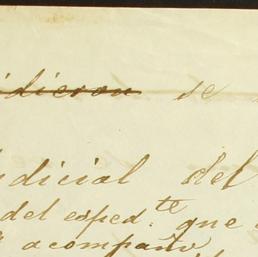 idieron se
udicial del
del exped.te que
acompaño,